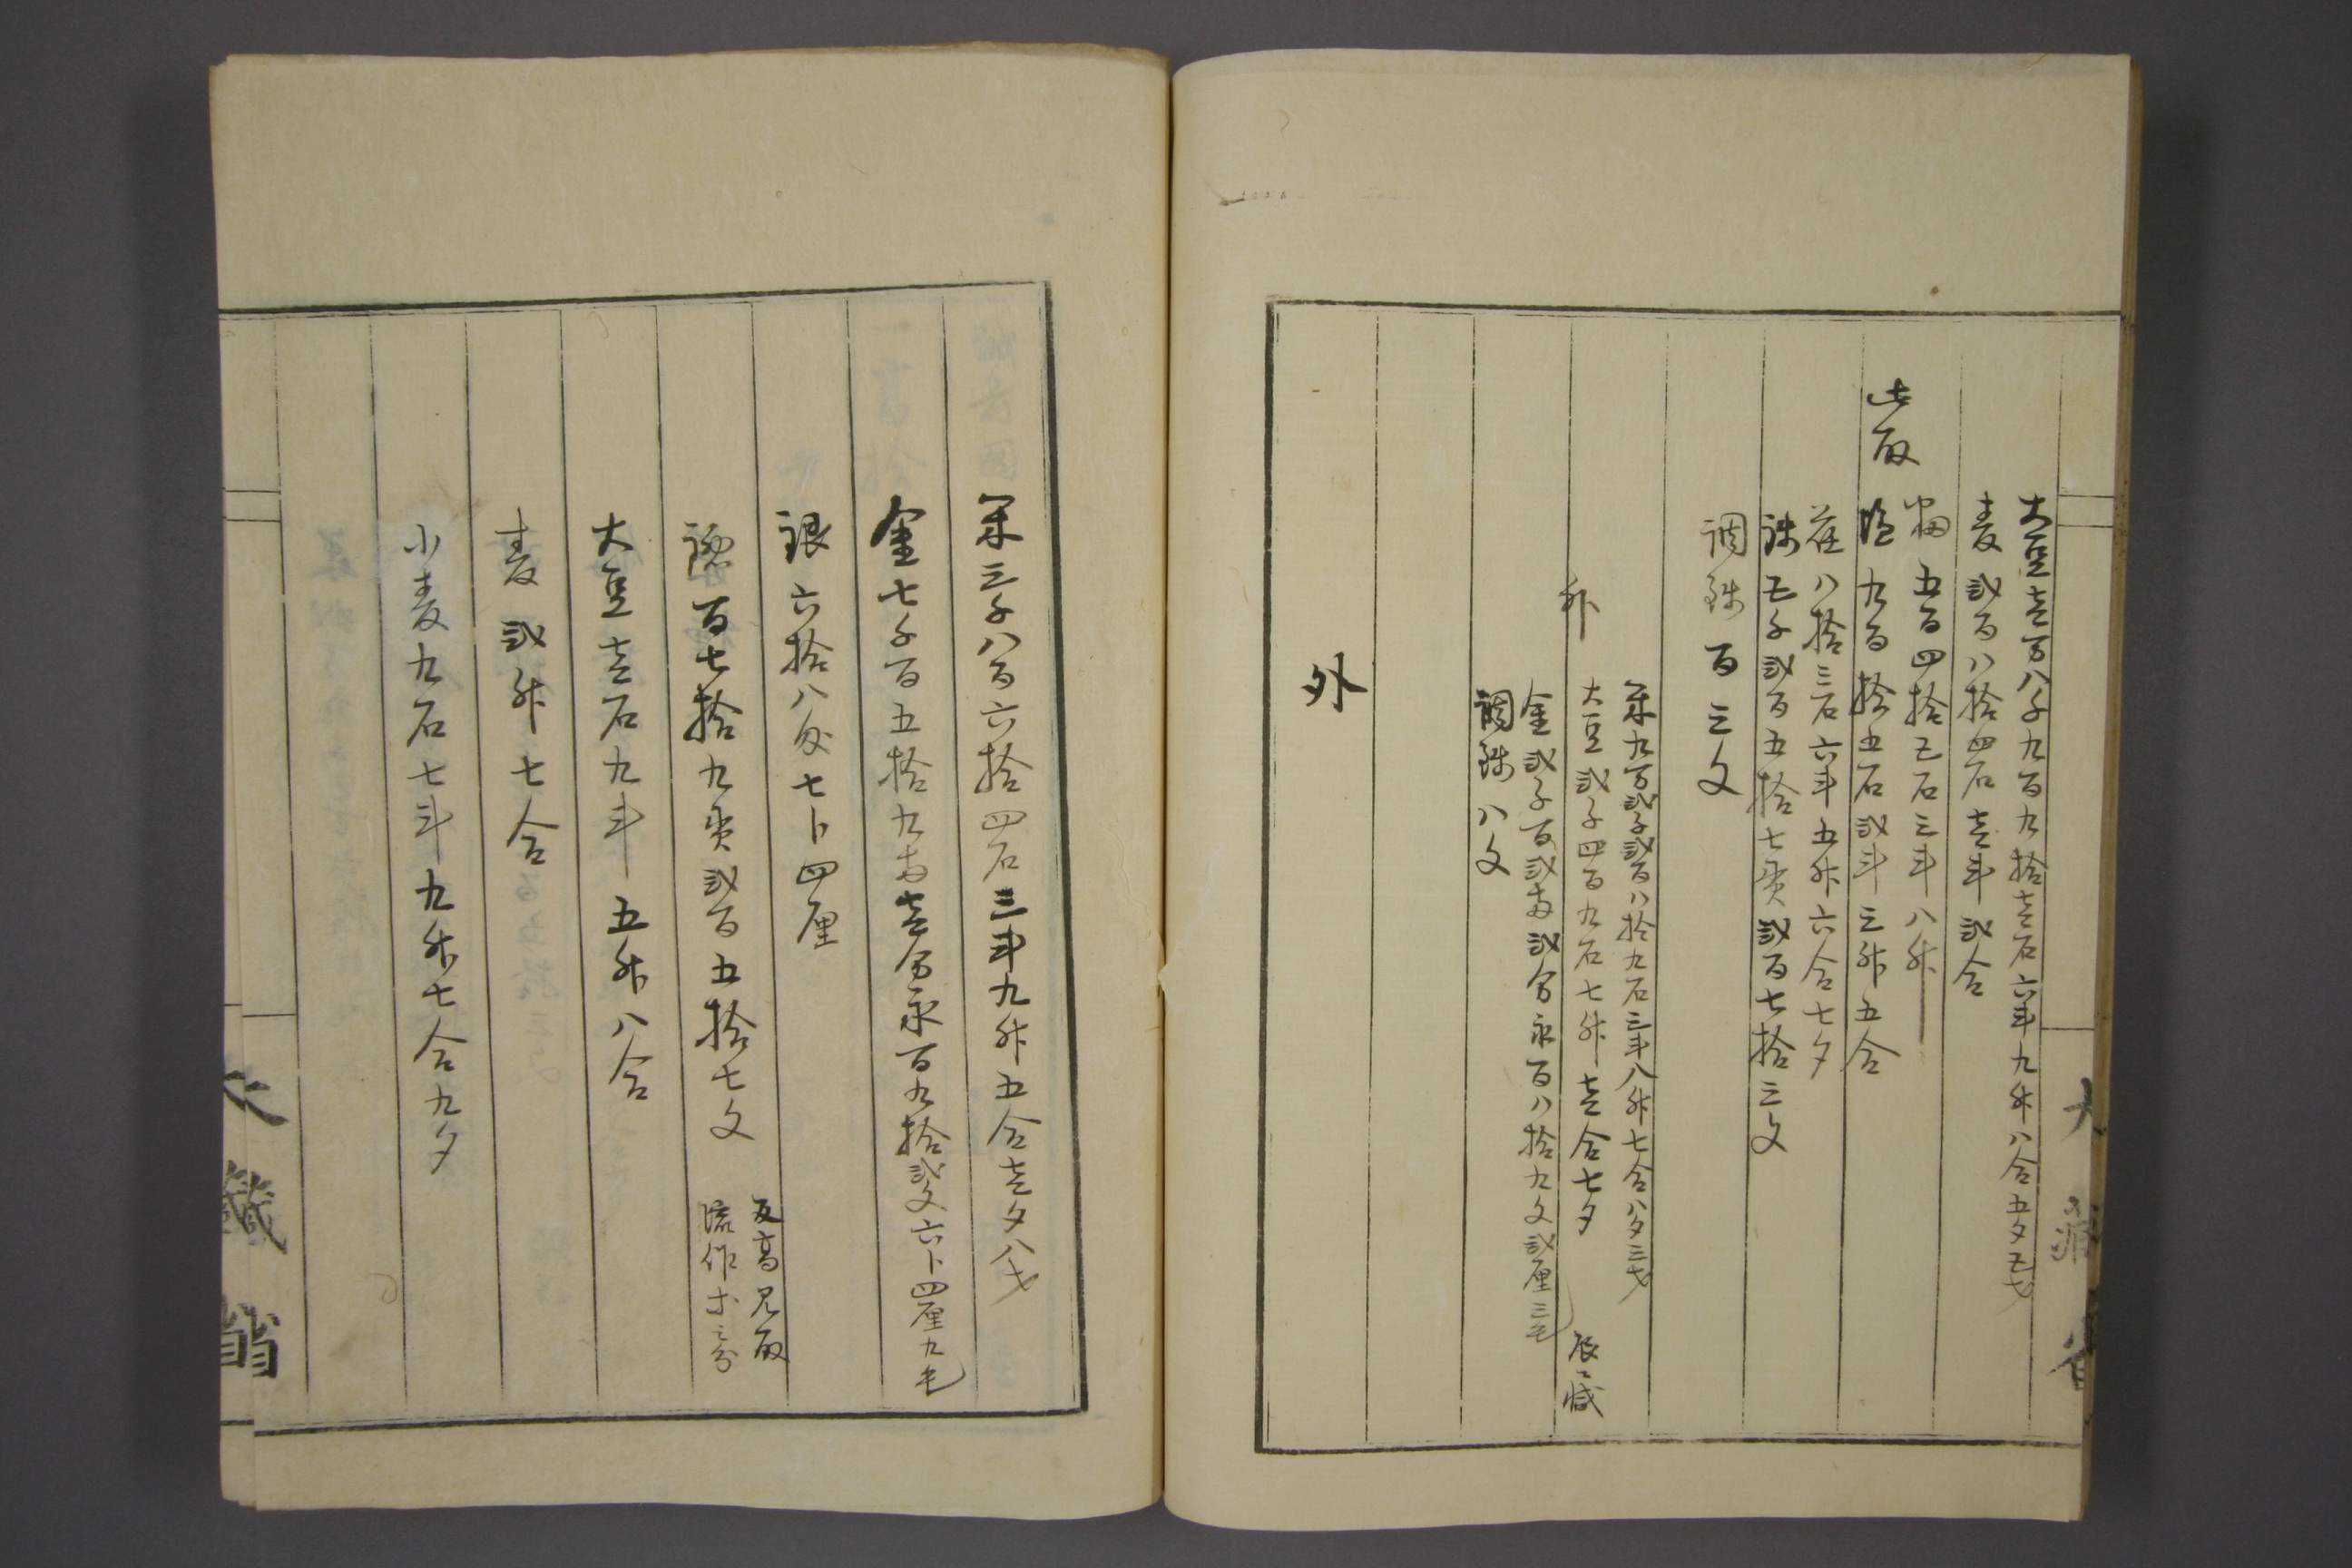 大豆壱万八千九百九拾壱石六斗九升八合五夕五才
麦弐百八拾四石壱斗弐合
糯五百四拾五石三斗八升
此取
塩九百拾五石弐斗三升五合
荏八拾三石六斗五升六合七夕
銭五千弐百五拾七貫弐百七拾三文
調銭百三文
米九万弐千弐百八拾九石三斗八升七合八夕三才
外
大豆弐千四百九石七升壱合七夕
辰減
金弐千百弐両弐分永百八拾九文弐厘三毛
調銭八文
外
大蔵省
米三千八百六拾四石三斗九升五合壱夕八才
金七千百五拾九両壱分永百九拾弐文六卜四厘九毛
銀六拾八匁七卜四厘
銭百七拾九貫弐百五拾七文
反高見取
流作等之分
大豆壱石九斗五升八合
麦弐升七合
小麦九石七斗九升七合九夕
大蔵省